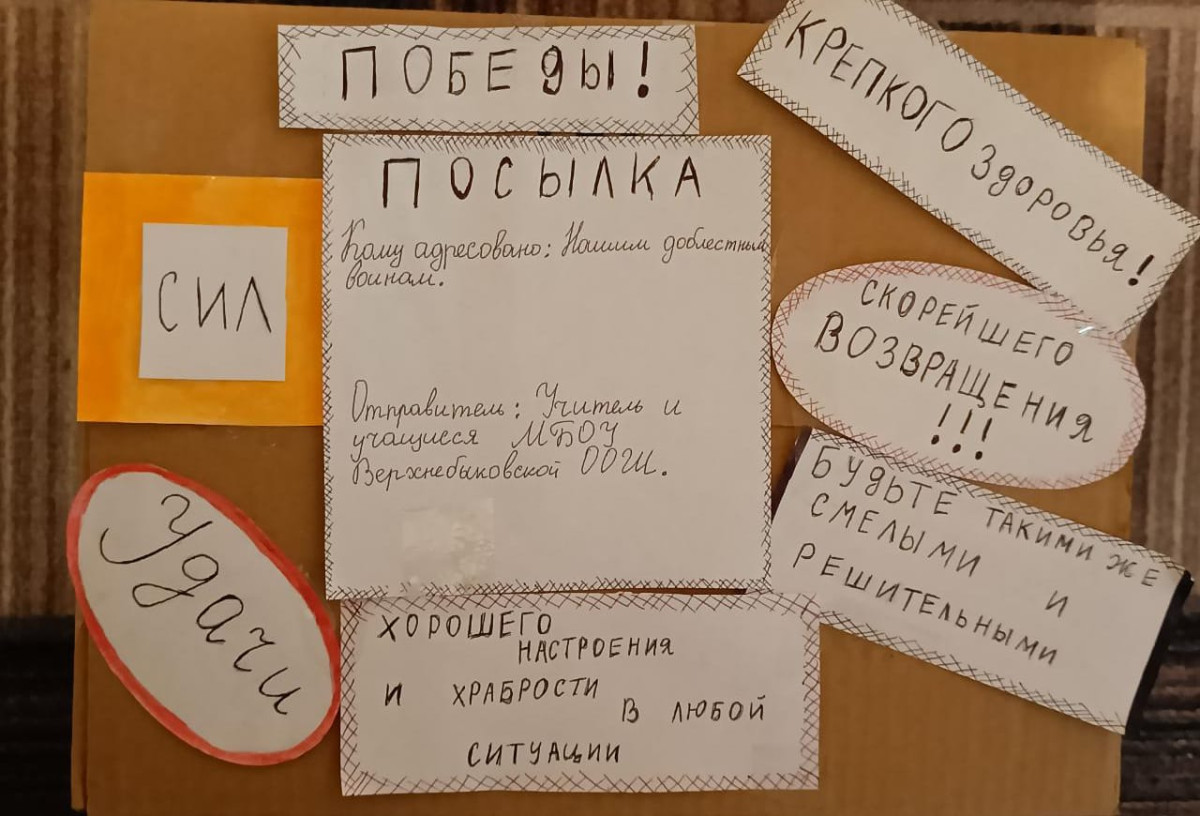 ПОБЕДЫ!
КРЕПКОГО ЗДОРОВЬЯ!
ПОСЫЛКА
Кому адресовано: Нашим доблестным
воинам.
СИЛ
СКОРЕЙШЕГО
ВОЗВРАЩЕНИЯ
!!!
Отправитель: Учитель и
учащиеся МБОУ
Верхнебыковской ООШ.
БУДЬТЕ ТАКИМИ ЖЕ
СМЕЛЫМИ И
РЕШИТЕЛЬНЫМИ
Удачи
ХОРОШЕГО
НАСТРОЕНИЯ
И ХРАБРОСТИ
В ЛЮБОЙ
СИТУАЦИИ